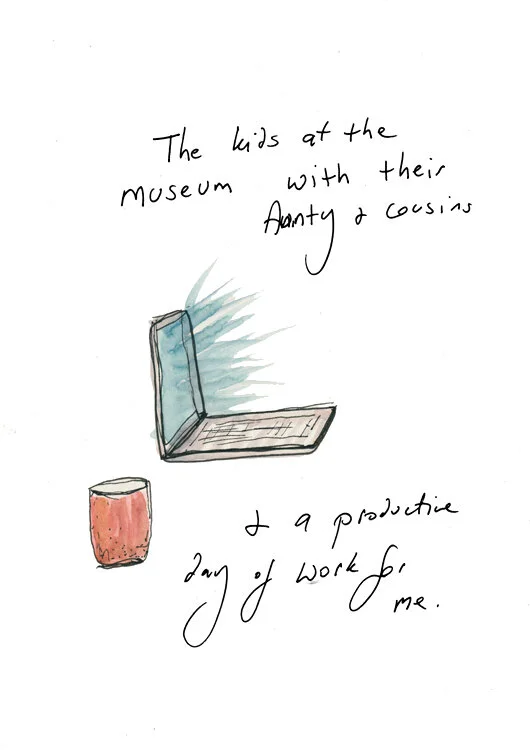 The kids at the
museum with their
Aunty & cousins
& a productive
day of work for
me.